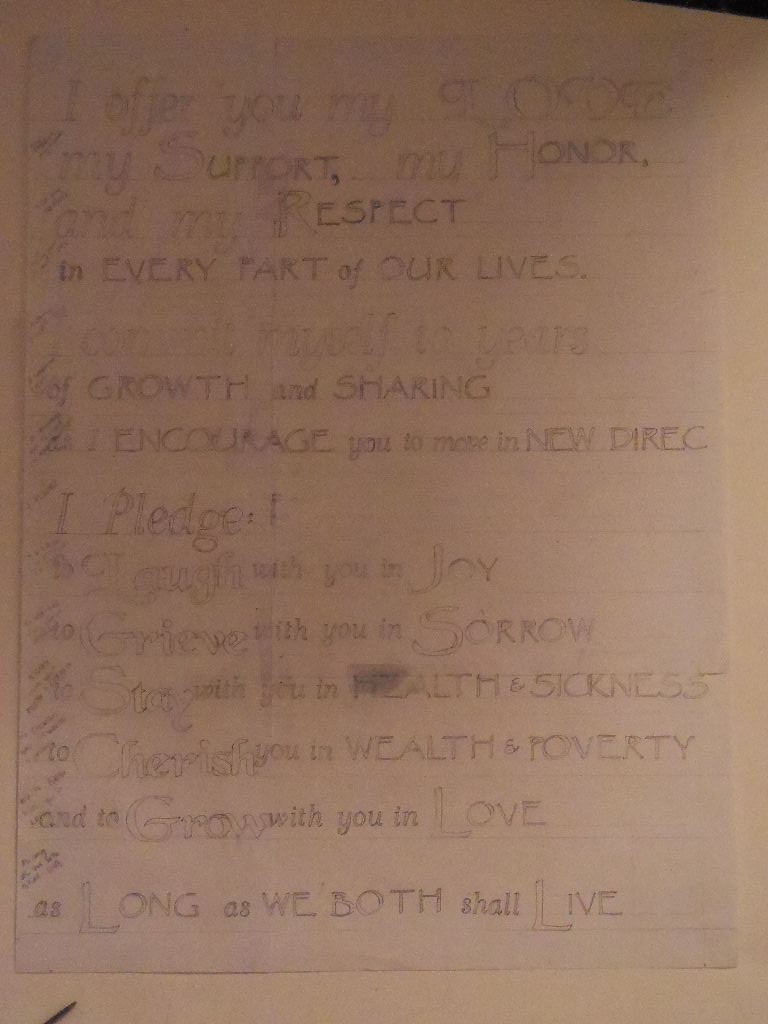 I offer you my LOVE
my SUPPORT, my HONOR,
and my RESPECT
in EVERY PART of OUR LIVES.
I commit myself to years
of GROWTH and SHARING
as I ENCOURAGE you to move in NEW DIREC
I Pledge:
to Laugh with you in JOY
to Grieve with you in SORROW
to Stay with you in HEALTH & SICKNESS
to Cherish you in WEALTH & POVERTY
and to Grow with you in LOVE
as LONG as WE BOTH shall LIVE